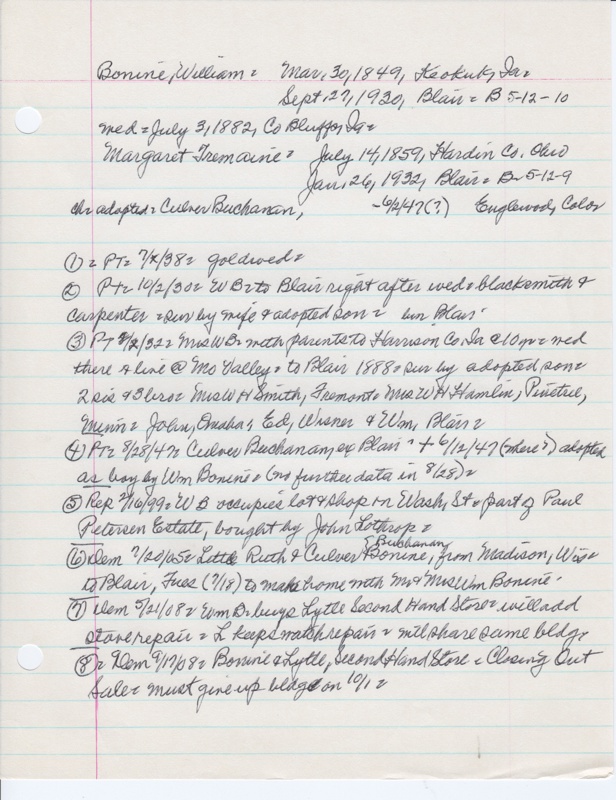 Bonine, William = Mar, 30, 1849, Keokuk, Ia =
Sept, 27, 1930, Blair = B 5-12-10
med = July 3, 1882, Co Bluffs, Ia =
Margaret Tremaine = July 14, 1859, Hardin Co. Ohio
Jan, 26, 1932, Blair = B 5-12-9
ch = adopted = Culver Buchanan, -6/2/47(?) Englewood, Color
① = PT = 7/ /38 = goldwed =
② PT = 10/2/30 = W B = to Blair right after wed = blacksmith &
carpenter = sur by wife & adopted son = bur Blair
③ PT /2/32 = Mrs W B = with parents to Harrison Co Ia @ 10 yr = wed
there & live @ Mo Valley = to Blair 1888 = sur by adopted son =
2 sis & 3 bro = Mrs W H Smith, Fremont = Mrs W H Hamlin, Pinetree,
Minn = John, Omaha, Ed, Wisner & Wm, Blair =
④ PT = 8/28/47 = Culver Buchanan, ex Blair + 6/12/47 (where?) adopted
as boy by Wm Bonine = (no further data in 8/28) =
⑤ Rep 2/16/99 = W B occupies lot & shop on Wash, St = part of Paul
Petersen Estate, bought by John Lothrop =
⑥ Dem 7/20/05 = Little Ruth & Culver Bonine, from Madison, Wis =
Buchanan
to Blair, Tues (7/18) to make home with Mr & Mrs Wm Bonine
⑦ Dem 5/21/08 = Wm B = buys Lytle Second Hand Store = will add
stove repair = L keeps watch repair = will share same bldg,
⑧ = Dem 9/17/08 = Bonine & Lytle, Second Hand Store = Closing Out
Sale = must give up bldg on 10/1 =